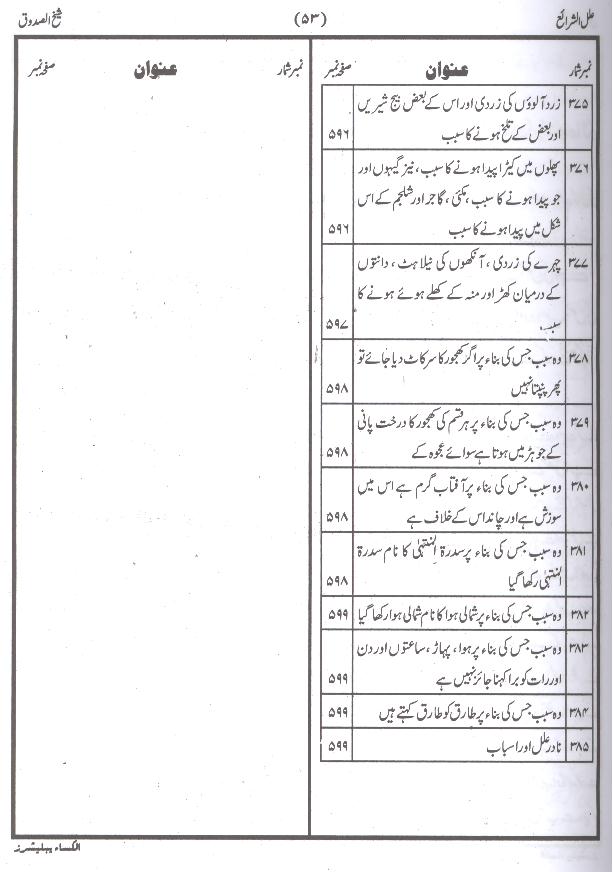 علل الشرائع (۵۳) شیخ الصدوق
نمبر شمار عنوان صفحہ نمبر
۳۷۵ زرد آلوؤں کی زردی اور اس کے بعض بیج شیریں
اور بعض کے تلخ ہونے کا سبب ۵۹۶
۳۷۶ پھلوں میں کیڑا پیدا ہونے کا سبب، نیز گیہوں اور
جو پیدا ہونے کا سبب، مکئی، گاجر اور شلجم کے اس
شکل میں پیدا ہونے کا سبب ۵۹۶
۳۷۷ چہرے کی زردی، آنکھوں کی نیلاہٹ، دانتوں
کے درمیان کھڑ اور منہ کے کھلے ہوئے ہونے کا
سبب ۵۹۷
۳۷۸ وہ سبب جس کی بناء پر اگر کھجور کا سر کاٹ دیا جائے تو
پھر پنپتا نہیں ۵۹۸
۳۷۹ وہ سبب جس کی بناء پر ہر قسم کی کھجور کا درخت پانی
کے جوہڑ میں ہوتا ہے سوائے عجوہ کے ۵۹۸
۳۸۰ وہ سبب جس کی بناء پر آفتاب گرم ہے اس میں
سوزش ہے اور چاند اس کے خلاف ہے ۵۹۸
۳۸۱ وہ سبب جس کی بناء پر سدرۃ المنتہیٰ کا نام سدرۃ
المنتہیٰ رکھا گیا ۵۹۸
۳۸۲ وہ سبب جس کی بناء پر شمالی ہوا کا نام شمالی ہوا رکھا گیا ۵۹۹
۳۸۳ وہ سبب جس کی بناء پر ہوا، پہاڑ، ساعتوں اور دن
اور رات کو برا کہنا جائز نہیں ہے ۵۹۹
۳۸۴ وہ سبب جس کی بناء پر طارق کو طارق کہتے ہیں ۵۹۹
۳۸۵ نادر علل اور اسباب ۵۹۹
نمبر شمار عنوان صفحہ نمبر
الکساء پبلیشرز